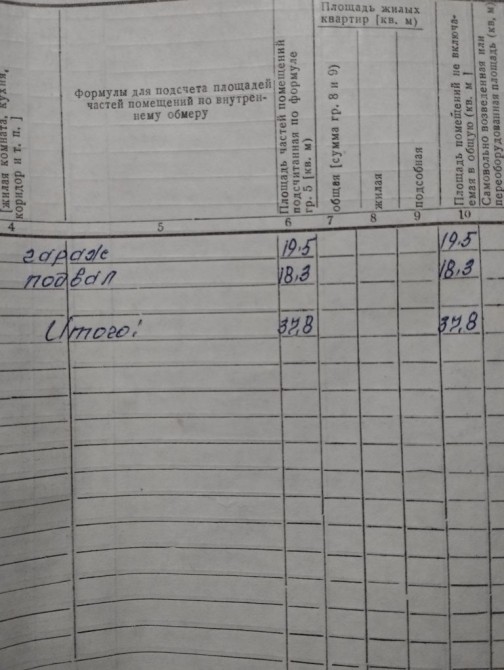 [жилая комната, кухня,
коридор и т. п. ]
Формулы для подсчета площадей
частей помещений по внутрен-
нему обмеру
Площадь частей помещений
подсчитанная по формуле
гр. 5 [кв. м)
Площадь жилых
квартир [кв. м)
общая [сумма гр. 8 и 9)
жилая
подсобная
Площадь помещений не включа-
емая в общую (кв. м ]
Самовольно возведенная или
переоборудованная площадь (кв. м)
4 5 6 7 8 9 10
гараж 19.5 19.5
подвал 18,3 18,3
Итого: 37,8 37,8